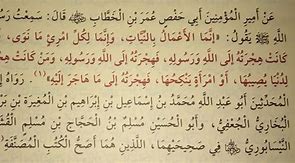 عَنْ أَمِيرِ الْمُؤْمِنِينَ أَبِي حَفْصٍ عُمَرَ بْنِ الْخَطَّابِ ﷺ قَالَ: سَمِعْتُ رَسُ
اللَّهِ ﷺ يَقُولُ: «إِنَّمَا الْأَعْمَالُ بِالنِّيَّاتِ، وَإِنَّمَا لِكُلِّ امْرِئٍ مَا نَوَى،
كَانَتْ هِجْرَتُهُ إِلَى اللَّهِ وَرَسُولِهِ، فَهِجْرَتُهُ إِلَى اللَّهِ وَرَسُولِهِ، وَمَنْ كَانَتْ هِجْ
لِدُنْيَا يُصِيبُهَا، أَوِ امْرَأَةٍ يَنْكِحُهَا، فَهِجْرَتُهُ إِلَى مَا هَاجَرَ إِلَيْهِ»(١)، رَوَاهُ
الْمُحَدِّثِينَ أَبُو عَبْدِ اللَّهِ مُحَمَّدُ بْنُ إِسْمَاعِيلَ بْنِ إِبْرَاهِيمَ بْنِ الْمُغِيرَةِ بْنِ بَرْ
الْبُخَارِيُّ الْجُعْفِيُّ، وَأَبُو الْحُسَيْنِ مُسْلِمُ بْنُ الْحَجَّاجِ بْنِ مُسْلِمٍ الْقُشَ
النَّيْسَابُورِيُّ فِي صَحِيحَيْهِمَا، الَّذَيْنِ هُمَا أَصَحُّ الْكُتُبِ الْمُصَنَّفَةِ